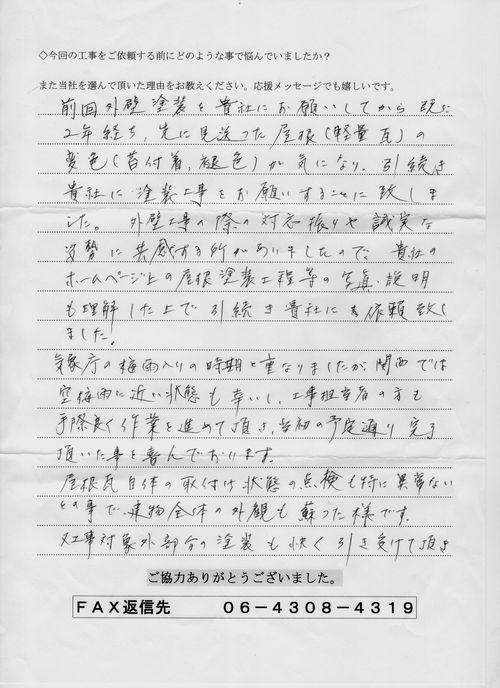 ◇今回の工事をご依頼する前にどのような事で悩んでいましたか？
また当社を選んで頂いた理由をお教えください。応援メッセージでも嬉しいです。
前回外壁塗装を貴社にお願いしてから既に
2年経ち、先に見送った屋根(軽量瓦)の
変色(苔付着、褪色)が気になり、引続き
貴社に塗装工事をお願いすることに致しま
した。外壁工事の際の対応振りや誠実な
姿勢に共感する所がありましたので、貴社の
ホームページ上の屋根塗装工程等の写真、説明
も理解した上で引続き貴社に依頼致し
ました。
気象庁の梅雨入りの時期と重なりましたが、関西では
空梅雨に近い状態も幸いし、工事担当者の方も
手際良く作業を進めて頂き、当初の予定通り完了
頂いた事を喜んでおります。
屋根瓦自体の取付け状態の点検も特に異常ない
との事で、建物全体の外観も蘇った様です。
又工事対象外部分の塗装も快く引き受けて頂き
ご協力ありがとうございました。
FAX返信先 06－4308－4319